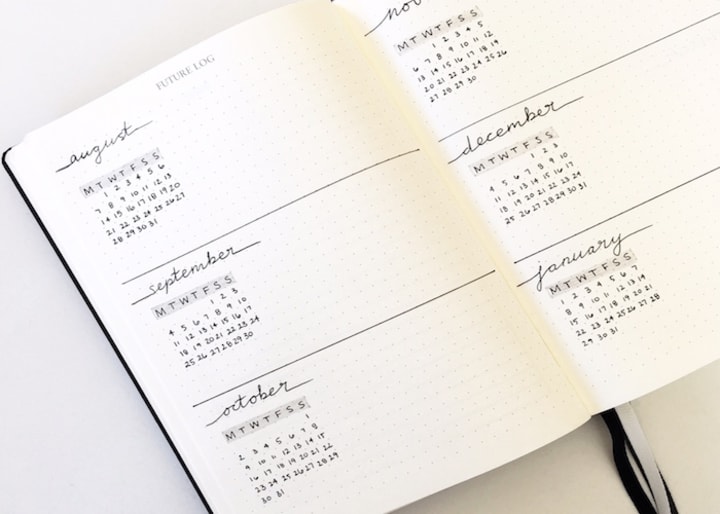 FUTURE LOG
august
M T W T F S S
1 2 3 4 5 6
7 8 9 10 11 12 13
14 15 16 17 18 19 20
21 22 23 24 25 26 27
28 29 30 31
september
M T W T F S S
1 2 3
4 5 6 7 8 9 10
11 12 13 14 15 16 17
18 19 20 21 22 23 24
25 26 27 28 29 30
october
M T W T F S S
1
2 3 4 5 6 7 8
9 10 11 12 13 14 15
16 17 18 19 20 21 22
23 24 25 26 27 28 29
30 31
nov
M T W T F S S
1 2 3 4 5
6 7 8 9 10 11 12
13 14 15 16 17 18 19
20 21 22 23 24 25 26
27 28 29 30
december
M T W T F S S
1 2 3
4 5 6 7 8 9 10
11 12 13 14 15 16 17
18 19 20 21 22 23 24
25 26 27 28 29 30 31
january
M T W T F S S
1 2 3 4 5 6 7
8 9 10 11 12 13 14
15 16 17 18 19 20 21
22 23 24 25 26 27 28
29 30 31